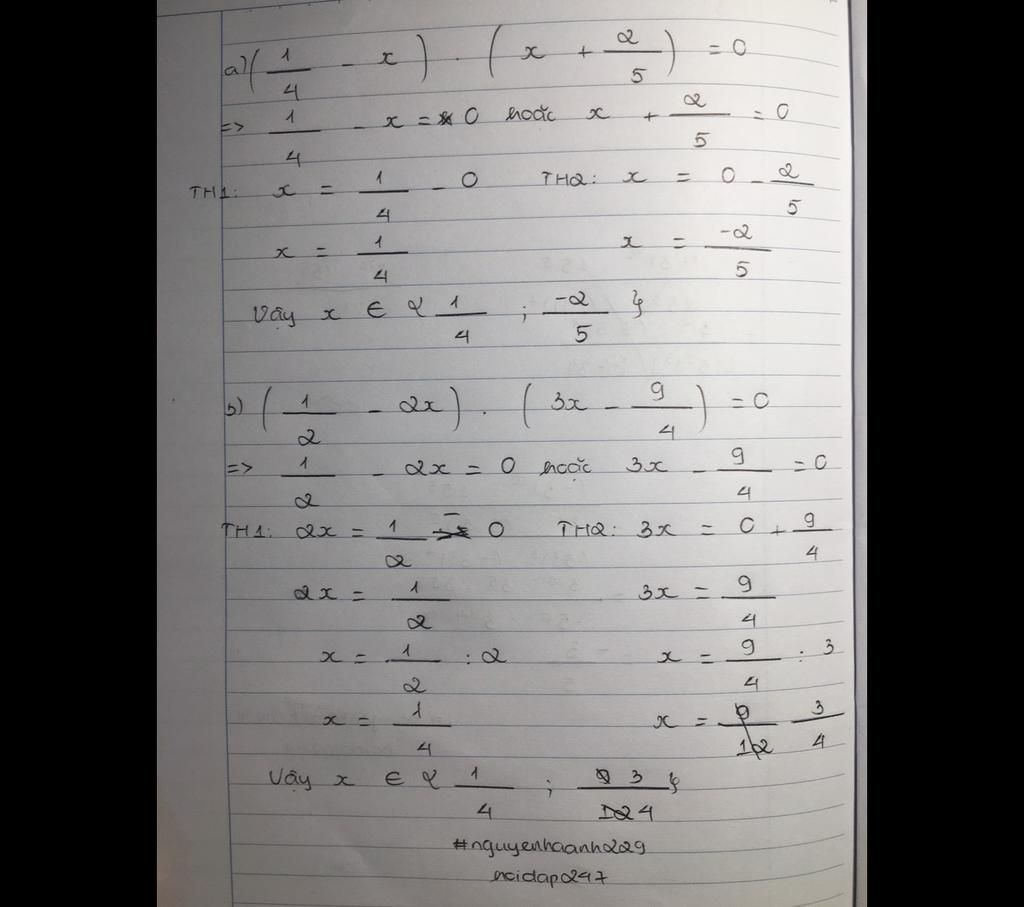 a) (1/4 - x) . (x + 2/5) = 0
=> 1/4 - x = 0 hoặc x + 2/5 = 0
TH1: x = 1/4 - 0 TH2: x = 0 - 2/5
x = 1/4 x = -2/5
Vậy x ∈ { 1/4 ; -2/5 }
b) (1/2 - 2x) . (3x - 9/4) = 0
=> 1/2 - 2x = 0 hoặc 3x - 9/4 = 0
TH1: 2x = 1/2 - 0 TH2: 3x = 0 + 9/4
2x = 1/2 3x = 9/4
x = 1/2 : 2 x = 9/4 : 3
x = 1/4 x = 9/12 3/4
Vậy x ∈ { 1/4 ; 3/4 }
#nguyenhaanh229
hoidap247